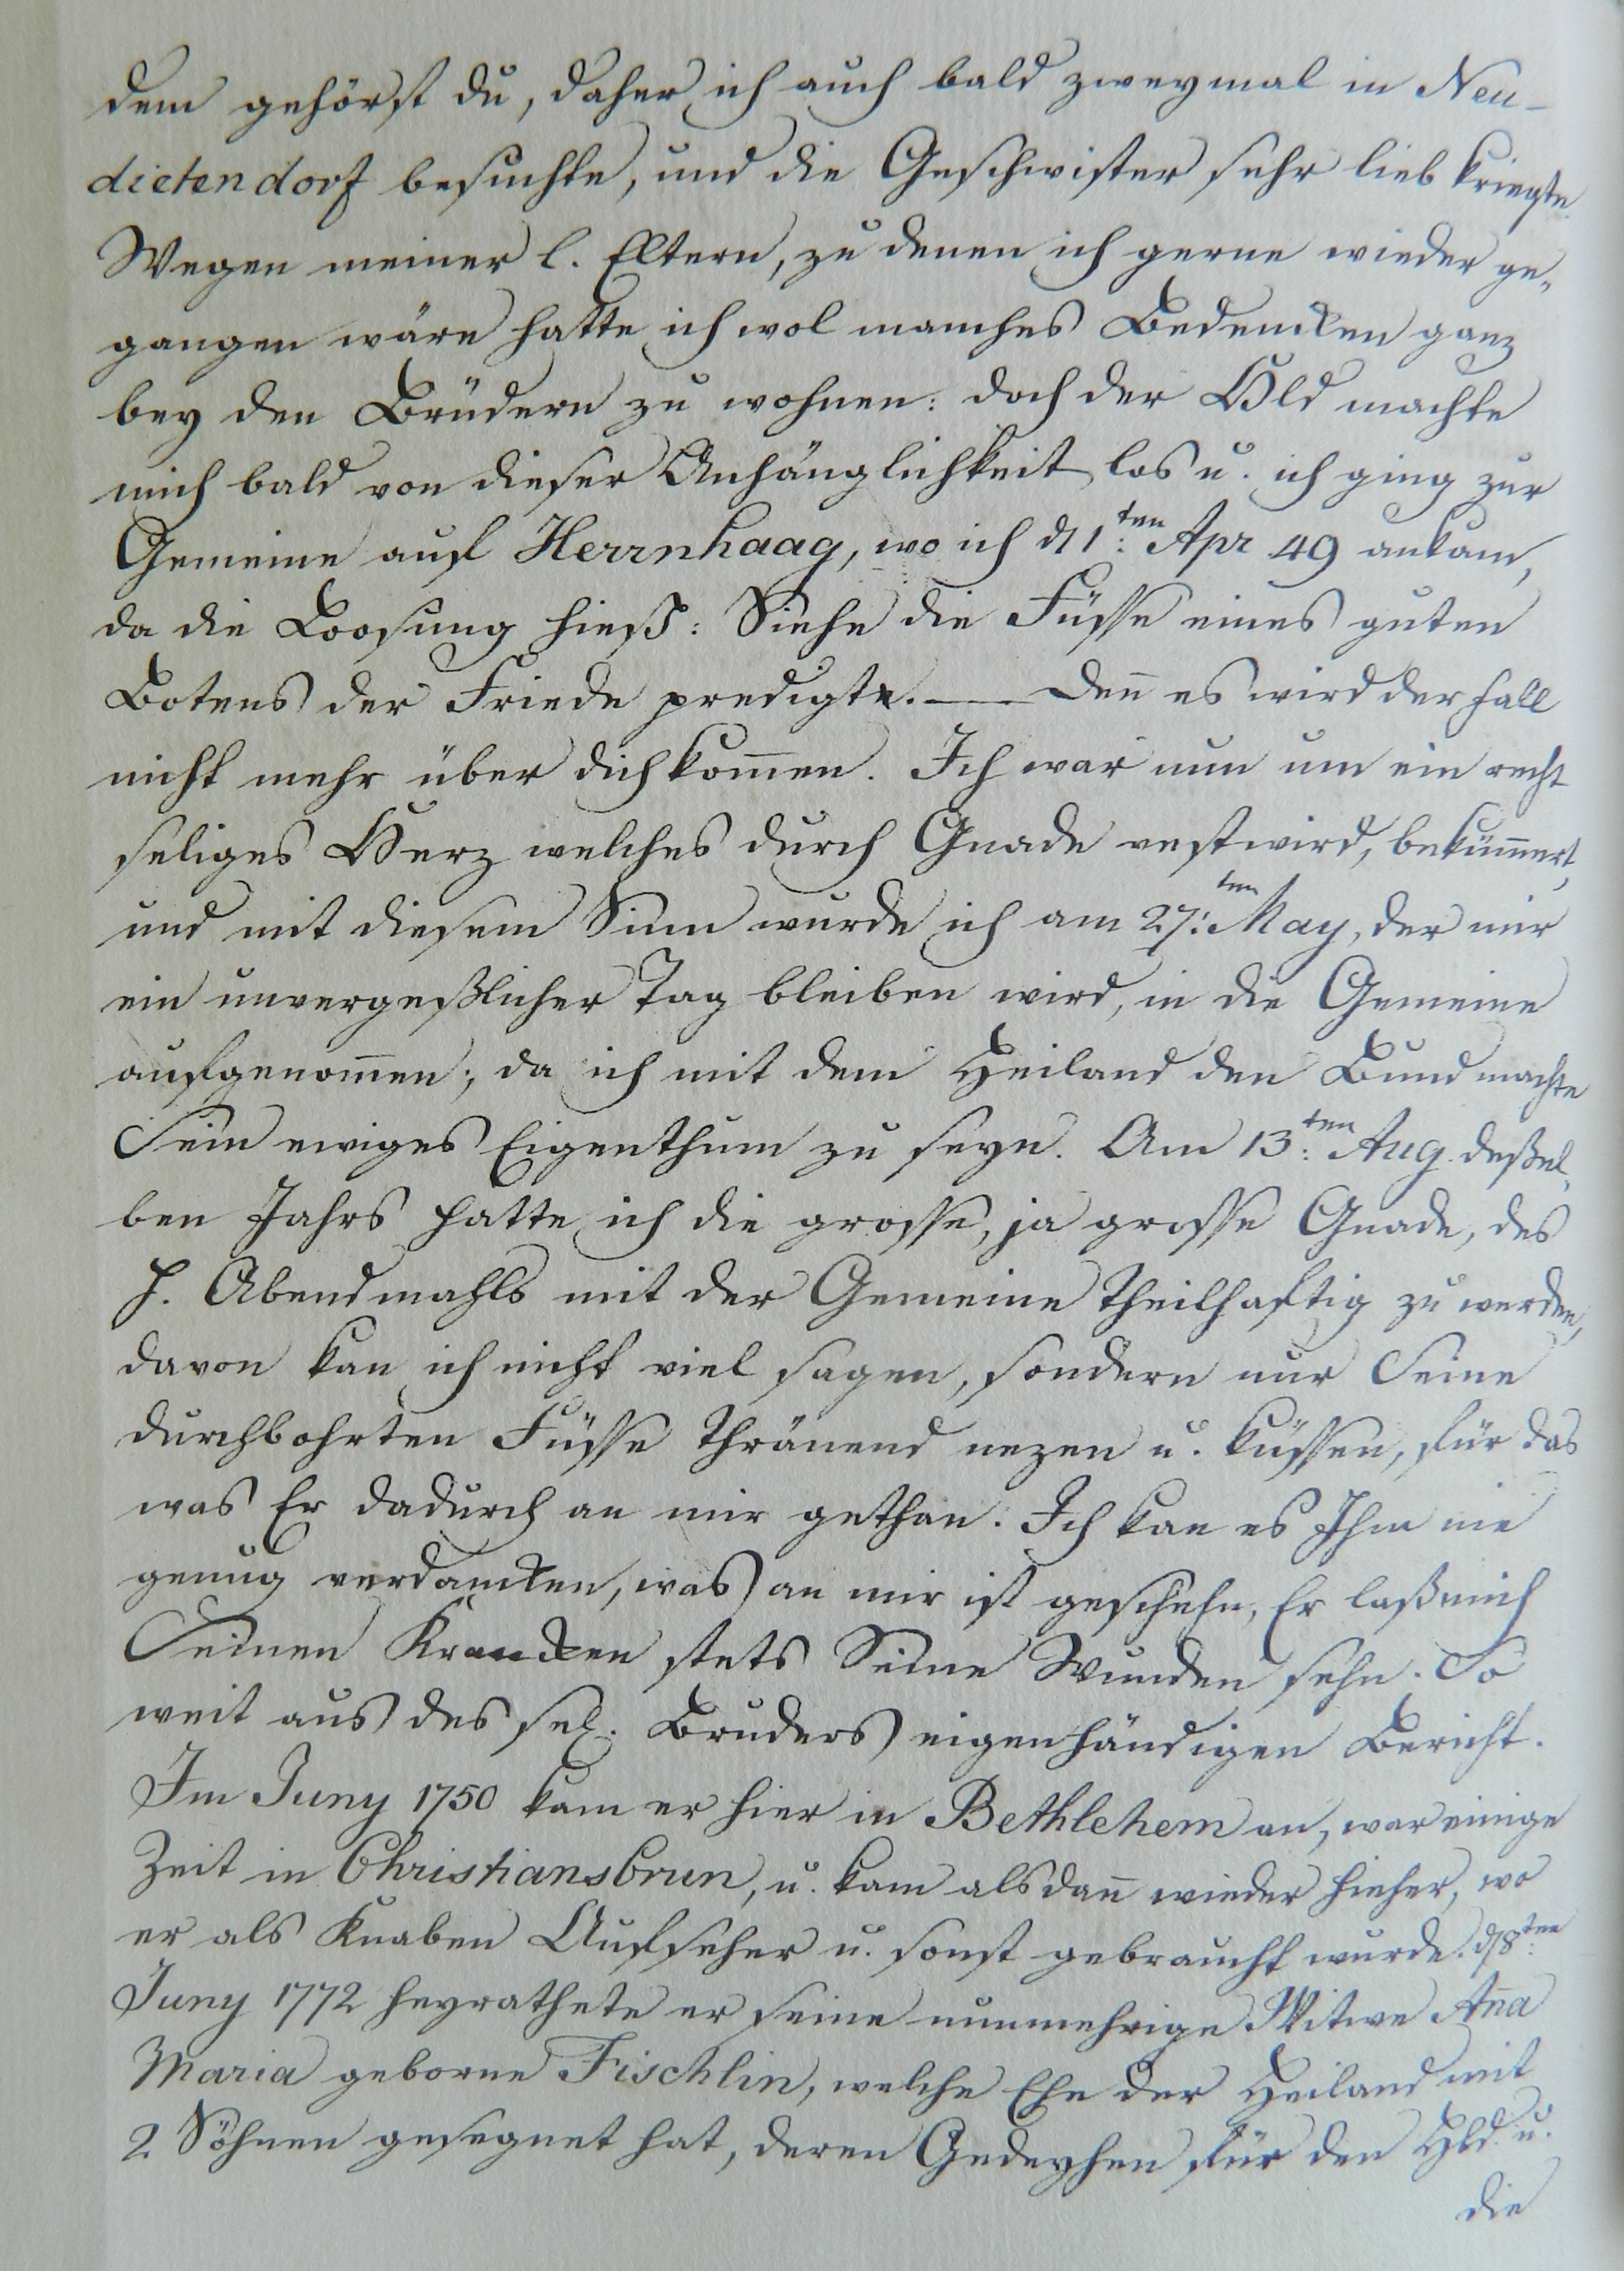 dem gehörst du, daher ich auch bald zweymal in Neu-
dietendorf besuchte, und die Geschwister sehr lieb kriegte.
Wegen meiner l. Eltern, zu denen ich gerne wieder ge„
gangen wäre hatte ich wol manches Bedencken ganz
bey den Brüdern zu wohnen: doch der Hld machte
mich bald von dieser Anhänglichkeit los u. ich ging zur
Gemeine auf Herrnhaag, wo ich d 1:ten Apr 49 ankam,
da die Loosung hieß: Siehe die Füsse eines guten
Botens der Friede predigte. — Den̄ es wird der Fall
nicht mehr über dich kom̄en. Ich war nun um ein recht
seliges Herz welches durch Gnade vest wird, beküm̄ert,
und mit diesem Sinn wurde ich am 27:ten May, der mir
ein unvergeßlicher Tag bleiben wird, in die Gemeine
aufgenom̄en; da ich mit dem Heiland den Bund machte
Sein ewiges Eigenthum zu seyn. Am 13:ten Aug. deßel„
ben Jahrs hatte ich die grosse, ja grosse Gnade, des
H. Abendmahls mit der Gemeine theilhaftig zu werden,
davon kan ich nicht viel sagen, sondern nur Seine
durchbohrten Füsse thränend nezen u. küssen, für das
was Er dadurch an mir gethan. Ich kan es Ihm nie
genug verdancken, was an mir ist geschehn, Er laß mich
Seinen Krancken stets Seine Wunden sehn. So
weit aus des sel. Bruders eigenhändigen Bericht.
Im Juny 1750 kam er hier in Bethlehem an, war einige
Zeit in Christiansbrun, u. kam alsdan̄ wieder hieher, wo
er als Knaben Aufseher u. sonst gebraucht wurde. d 8:ten
Juny 1772 heyrathete er seine nunmehrige Witwe An̄a
Maria geborne Fischlin, welche Ehe der Heiland mit
2 Söhnen gesegnet hat, deren Gedeyhen für den Hld. u.
die